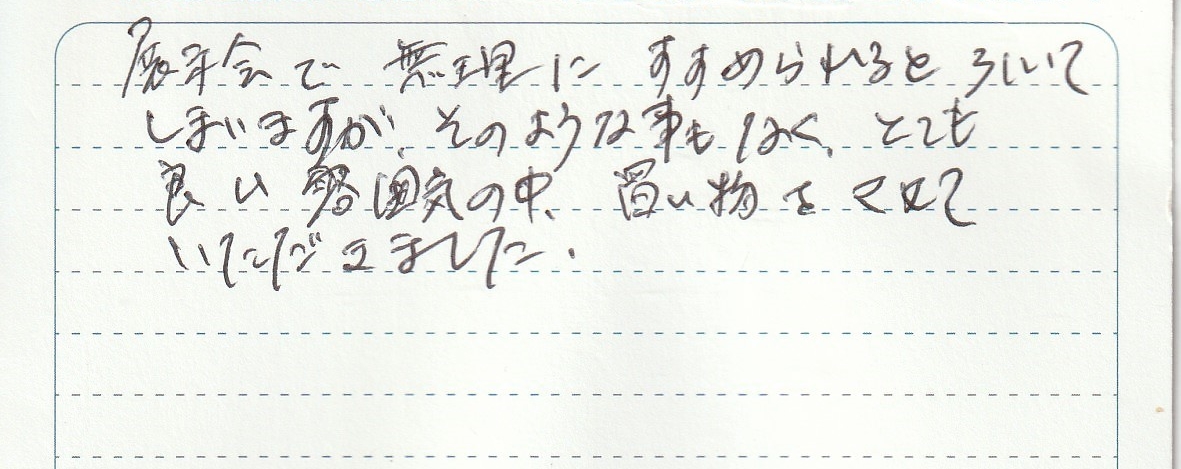 展示会で無理にすすめられるとひいて
しまいますが、そのような事もなく、とても
良い雰囲気の中、買い物をさせて
いただきました.